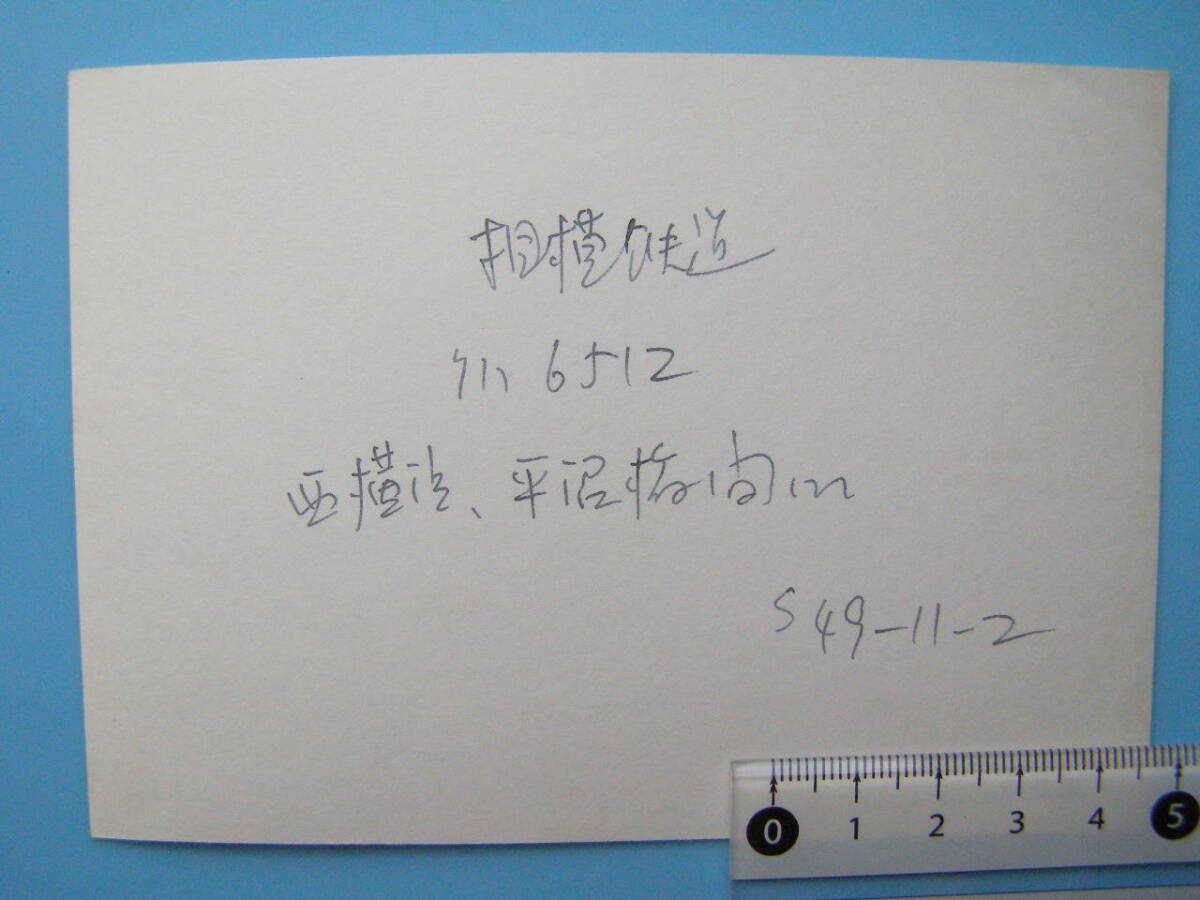 相模鉄道
クハ 6512
西横浜、平沼橋間にて
S 49-11-2
0 1 2 3 4 5